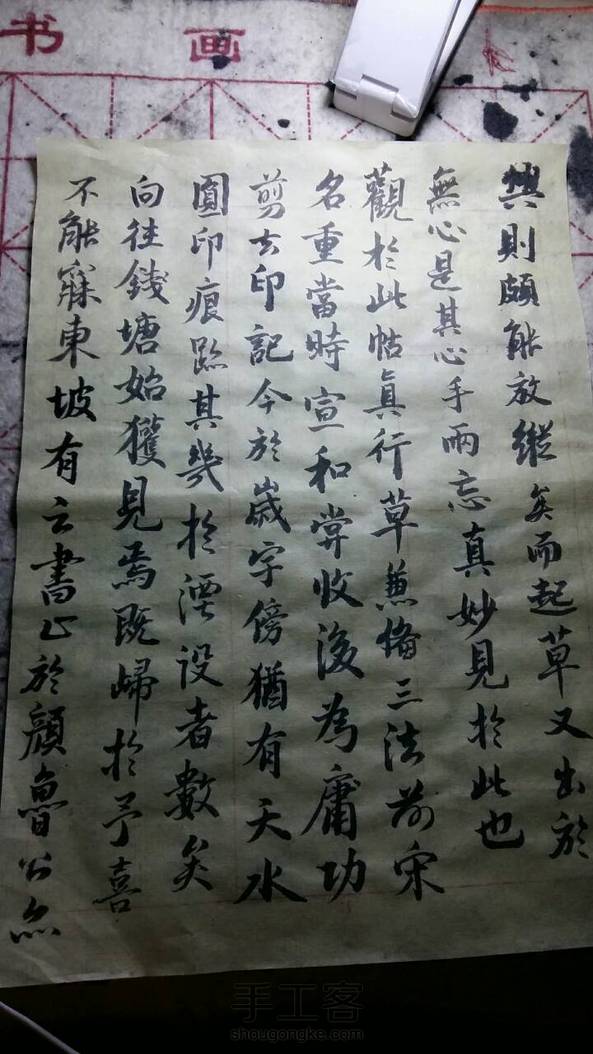 书 画
興則頗能放縱矣而起草又出於
無心是其心手兩忘真妙見於此也
觀於此帖真行草兼備三法前宋
名重當時宣和嘗收後為庸功
剪去印記今於歲字傍猶有天水
圓印痕跡其幾於湮没者數矣
向往錢塘始獲見焉既歸於予喜
不能寐東坡有云書止於顏魯公亦
手工客
shougongke.com